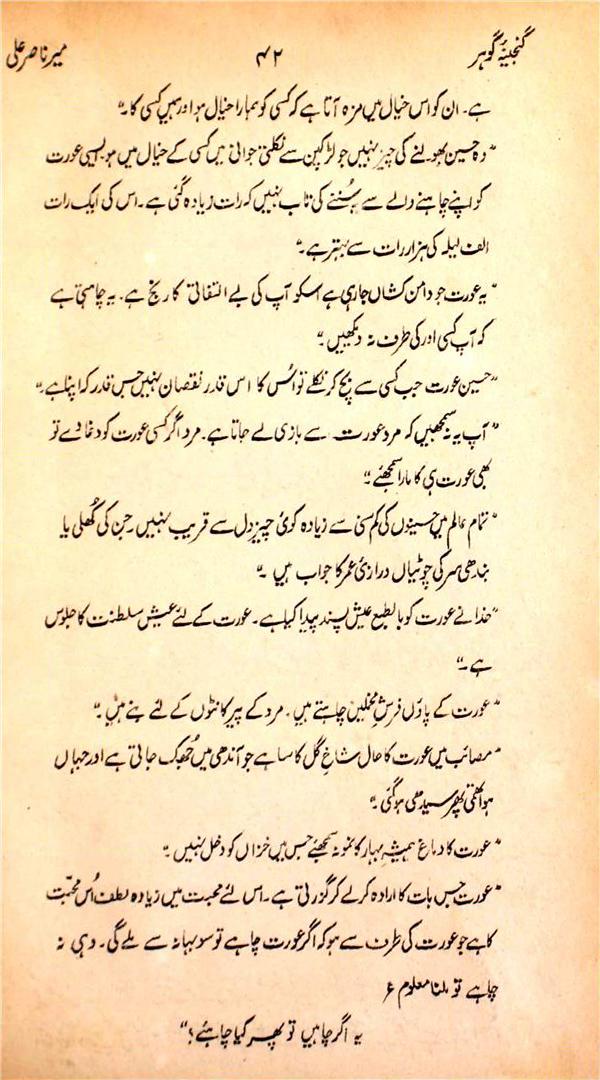 گنجینۂ گوہر ۴۲ میر ناصر علی
ہے۔ ان کو اس خیال میں مزہ آتا ہے کہ کسی کو ہمارا خیال ہو اور ہمیں کسی کا۔"
"وہ حسین بھولنے کی چیز نہیں جو لڑکپن سے نکلتی جوانی میں کسی کے خیال میں ہو ایسی عورت
کو اپنے چاہنے والے سے یہ سُننے کی تاب نہیں کہ رات زیادہ گئی ہے۔ اس کی ایک رات
الف لیلہ کی ہزار رات سے بہتر ہے۔"
"یہ عورت جو دامن کشاں جا رہی ہے اسکو آپ کی بے التفاتی کا رنج ہے۔ یہ چاہتی ہے
کہ آپ کسی اور کی طرف نہ دیکھیں۔"
"حسین عورت جب کسی سے بچ کر نکلے تو اُس کا اس قدر نقصان نہیں جس قدر کہ اپنا ہے۔"
"آپ یہ نہ سمجھیں کہ مرد عورت سے بازی لے جاتا ہے۔ مرد اگر کسی عورت کو دغا دے تو
بھی عورت ہی کا مارا سمجھئے۔"
"تمام عالم میں حسینوں کی کم سنی سے زیادہ کوئی چیز دل سے قریب نہیں۔ جن کی کُھلی یا
بندھی سر کی چوٹیاں درازئ عمر کا جواب ہیں۔"
"خدا نے عورت کو بالطبع عیش پسند پیدا کیا ہے۔ عورت کے لئے عیش سلطنت کا جلوس
ہے۔"
"عورت کے پاؤں فرشِ مخملیں چاہتے ہیں۔ مرد کے پیر کانٹوں کے لئے بنے ہیں۔"
"مصائب میں عورت کا حال شاخِ گل کا سا ہے جو آندھی میں جُھک جاتی ہے اور جہاں
ہوا تھمی پھر سیدھی ہو گئی۔"
"عورت کا دماغ ہمیشہ بہار کا نمونہ سمجھئے جس میں خزاں کو دخل نہیں۔"
"عورت جس بات کا ارادہ کرلے کر گزرتی ہے۔ اس لئے محبت میں زیادہ لطف اُس محبّت
کا ہے جو عورت کی طرف سے ہو کہ اگر عورت چاہے تو سو بہانہ سے ملے گی۔ وہی نہ
چاہے تو ملنا معلوم ؏
یہ اگر چاہیں تو پھر کیا چاہئے؟"